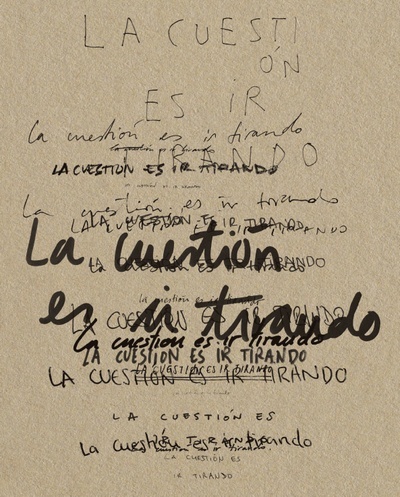 LA CUESTI
ÓN
ES IR
TIRANDO
la cuestión es ir tirando
la cuestión es ir tirando
LA CUESTIÓN ES IR TIRANDO
la cuestión es ir tirando
La cuestión es ir tirando
LA CUESTIÓN ES IR TIRANDO
LA CUESTIÓN ES IR TIRANDO
La cuestión
la CUESTIÓN ES IR TIRANDO
la cuestión es ir tirando
es ir tirando
LA CUESTIÓN ES IR TIRANDO
la cuestión es ir tirando
LA CUESTIÓN ES IR TIRANDO
LA CUESTIÓN ES IR TIRANDO
LA CUESTIÓN ES IR TIRANDO
LA CUESTIÓN ES
IR TIRANDO
La cuestión es ir tirando
cuestión es ir tirando
LA CUESTIÓN ES
IR TIRANDO